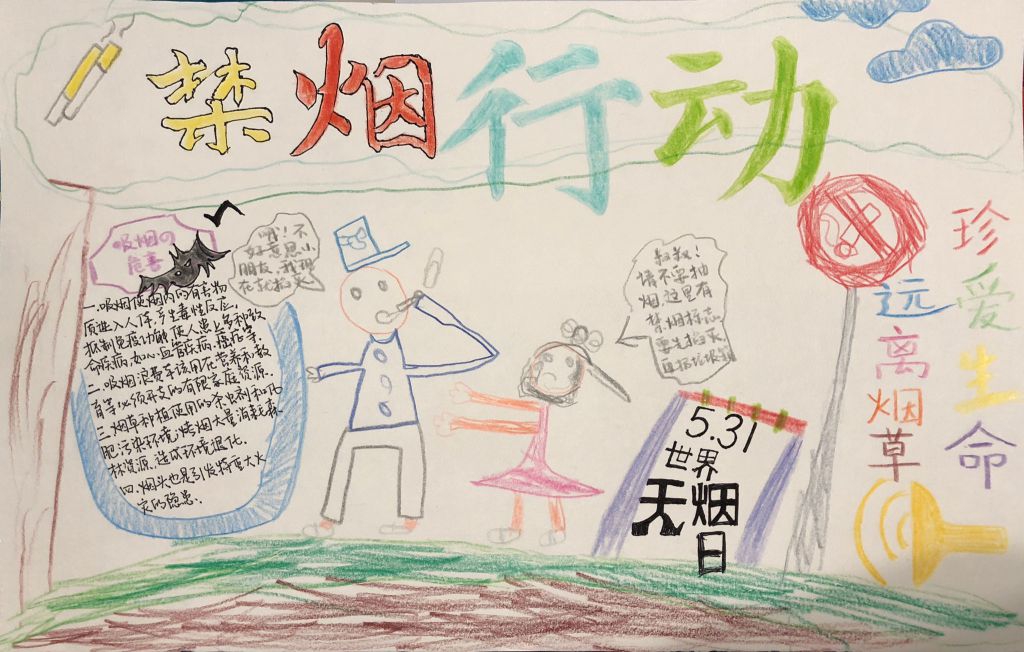 禁烟行动
吸烟の
危害
哦！不
好意思小
朋友，我现
在就掐灭
叔叔！
请不要抽
烟这里有
禁烟标志
要先掐灭
一、吸烟使烟内的有害物
质进入人体，产生毒性反应，
抵制免疫功能，使人患上多种致
命疾病，如心血管疾病、癌症等.
二、吸烟浪费车该用在营养和教
育等必须开支的有限家庭资源.
三、烟草种植使用的杀虫剂和化
肥污染环境；烤烟大量消耗森
林资源、造成环境退化.
四、烟头也是引发特度大火
灾的隐患.
5.31
世界
无烟日
珍爱生命
远离烟草